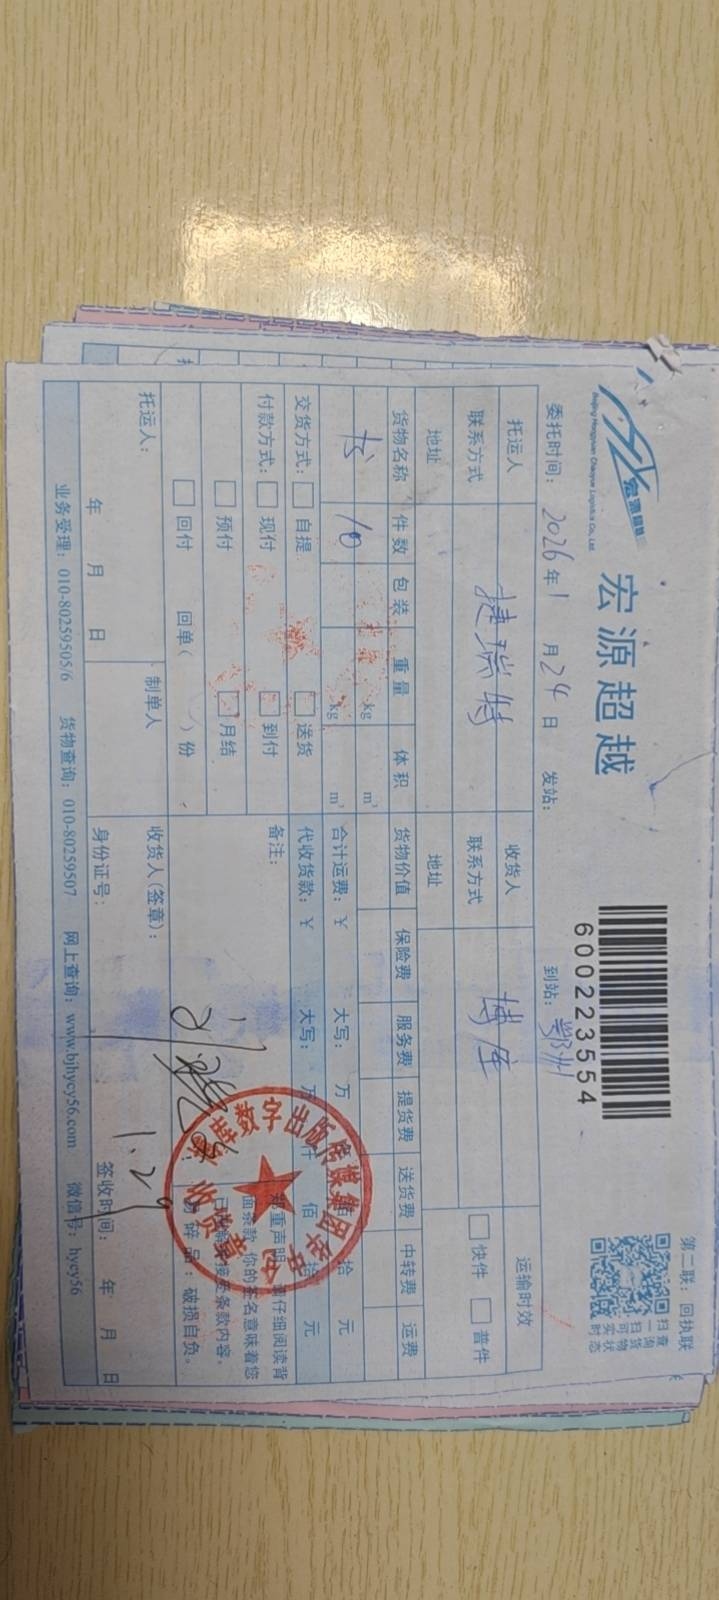 宏源超越
Beijing Hongyuan Chaoyue Logistics Co., Ltd.
宏源超越
600223554
第二联：回执联
扫一扫可实时
查询货物状态
委托时间：2026年1月24日 发站： 到站：鄂州
托运人 捷瑞特 收货人 博库 运输时效
联系方式 联系方式 快件 普件
地址 地址
货物名称 件数 包装 重量 体积 货物价值 保险费 服务费 提货费 送货费 中转费 运费
kg m³
书 10 kg m³ 合计运费：¥ 大写： 万 仟 佰 拾 元
交货方式： 自提 送货 代收货款：¥ 大写： 万 仟 佰 拾 元
付款方式： 现付 到付 备注：
预付 月结
回付 回单（ ）份
郑重声明：请仔细阅读背
面条款，你的签名意味着您
已理解并接受条款内容。
易碎品：破损自负。
托运人： 制单人 收货人(签章)：
年 月 日 身份证号： 签收时间： 年 月 日
1.29
数字出版传媒集团
收货章
业务受理：010-80259505/6 货物查询：010-80259507 网上查询：www.bjhycy56.com 微信号：hycy56